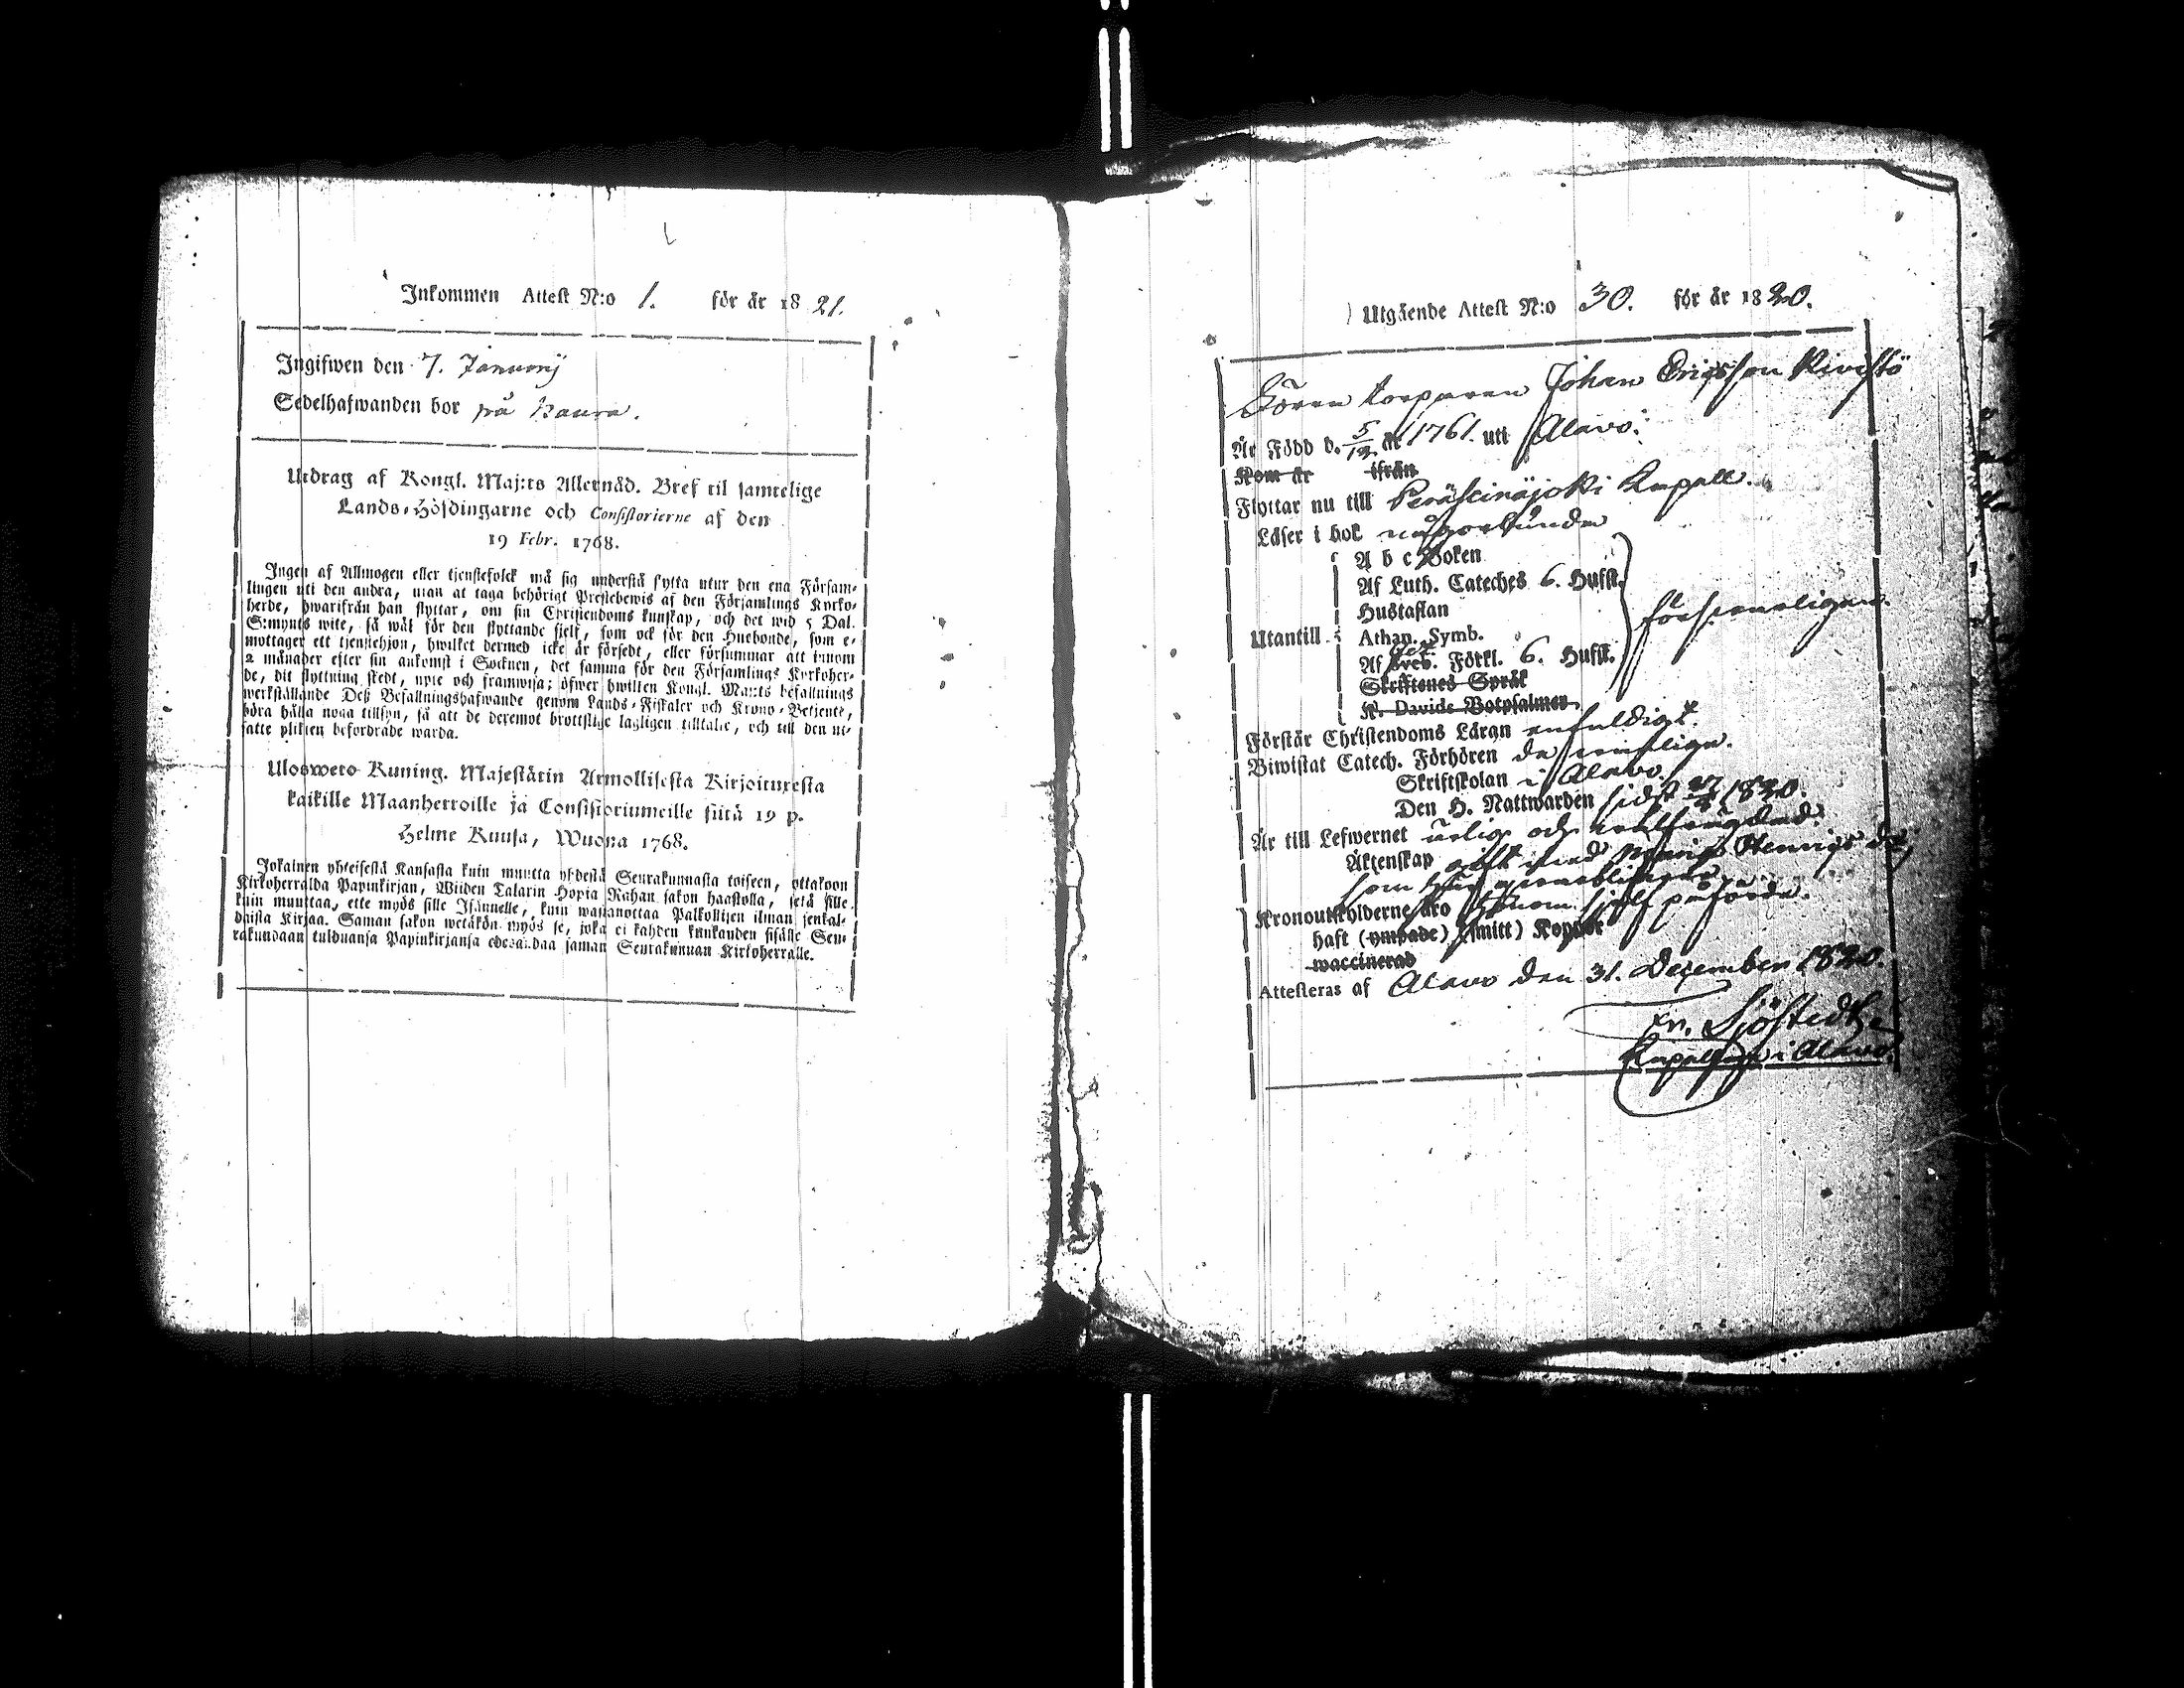 Inkommen Attest N:o 1. för år 1821.
Ingifwen den 7. Januarij
Sedelhafwanden bor på Kaura.
Utdrag af Kongl. Maj:ts Allernåd. Bref til samtelige
Lands-Höfdingarne och Consistorierne af den
19 Febr. 1768.
Ingen af Allmogen eller tjenstefolck må sig understå flytta utur den ena Försam-
lingen uti den andra, utan at taga behörigt Prestebewis af den Församlings Kyrko-
herde, hwarifrån han flyttar, om sin Christendoms kunskap, och det wid 5 Dal.
S:mynts wite, så wäl för den flyttande sjelf, som ock för den Husbonde, som e-
mottager ett tjenstehjon, hwilket dermed icke är försedt, eller försummar att innom
2 månader efter sin ankomst i Socknen, det samma för den Församlings Kyrkoher-
de, dit flyttning skedt, upte och framwisa; öfwer hwilken Kongl. Maj:ts befallnings
werkställande Deß Befallningshafwande genom Lands-Fiskaler och Krono-Betjente,
böra hålla noga tillsyn, så att de deremot brottslige lagligen tilltalte, och till den ut-
satte plikten befordrade warda.
Ulosweto Kuning. Majestätin Armollisesta Kirjoituxesta
kaikille Maanherroille ja Consistoriumeille siitä 19 p.
Helme Kuusa, Wuona 1768.
Jokainen yhteisestä Kansasta kuin muutta yhdestä Seurakunnasta toiseen, ottakoon
Kirkoherralda Papinkirjan, Wiiden Talarin Hopia Rahan sakon haastolla, sekä sille
kuin muuttaa, ette myös sille Isännelle, kuin wastanottaa Palkollisen ilman senkal-
daista Kirjaa. Saman sakon wetäkön myös se, joka ei kahden kuukauden sisälle Seu-
rakundaan tulduansa Papinkirjansa edesandaa saman Seurakunnan Kirkoherralle.
Utgående Attest N:o 30. för år 1820.
Torparen Johan Ericsson Rivistö
Är Född d. 5/12 år 1761. uti Alavo.
Kom år ifrån
Flyttar nu till Peräseinäjoki Kapell.
Läser i bok någorlunda
A b c Boken
Af Luth. Cateches 6. Hufst.
Hustaflan
Utantill Athan. Symb.
Af Sveb. Förkl. 6. Hufst.
försvarligen.
Skriftenes Språk
K. Davids Botpsalmer
Förstår Christendoms Läran enfaldigt.
Biwistat Catech. Förhören
Skriftskolan i Alavo.
Den H. Nattwarden sidst 1820.
Är till Lefwernet ärlig och
Äktenskap gift med
som
Kronoutskylderne äro honom sjelf påförde.
haft (ympade) (smitt) Koppor
waccinerad
Attesteras af Alavo den 31. December 1820.
Sjöstedt
Kapellan i Alavo.